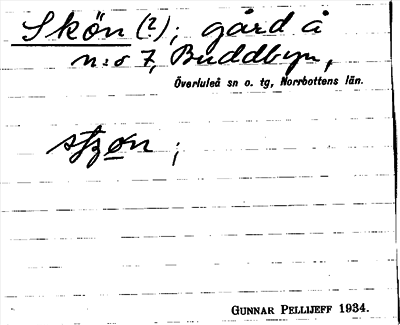 Skön (?); gård å
n:o 7, Buddbyn,
Överluleå sn o. tg, Norrbottens län.
;
GUNNAR PELLIJEFF 1934.